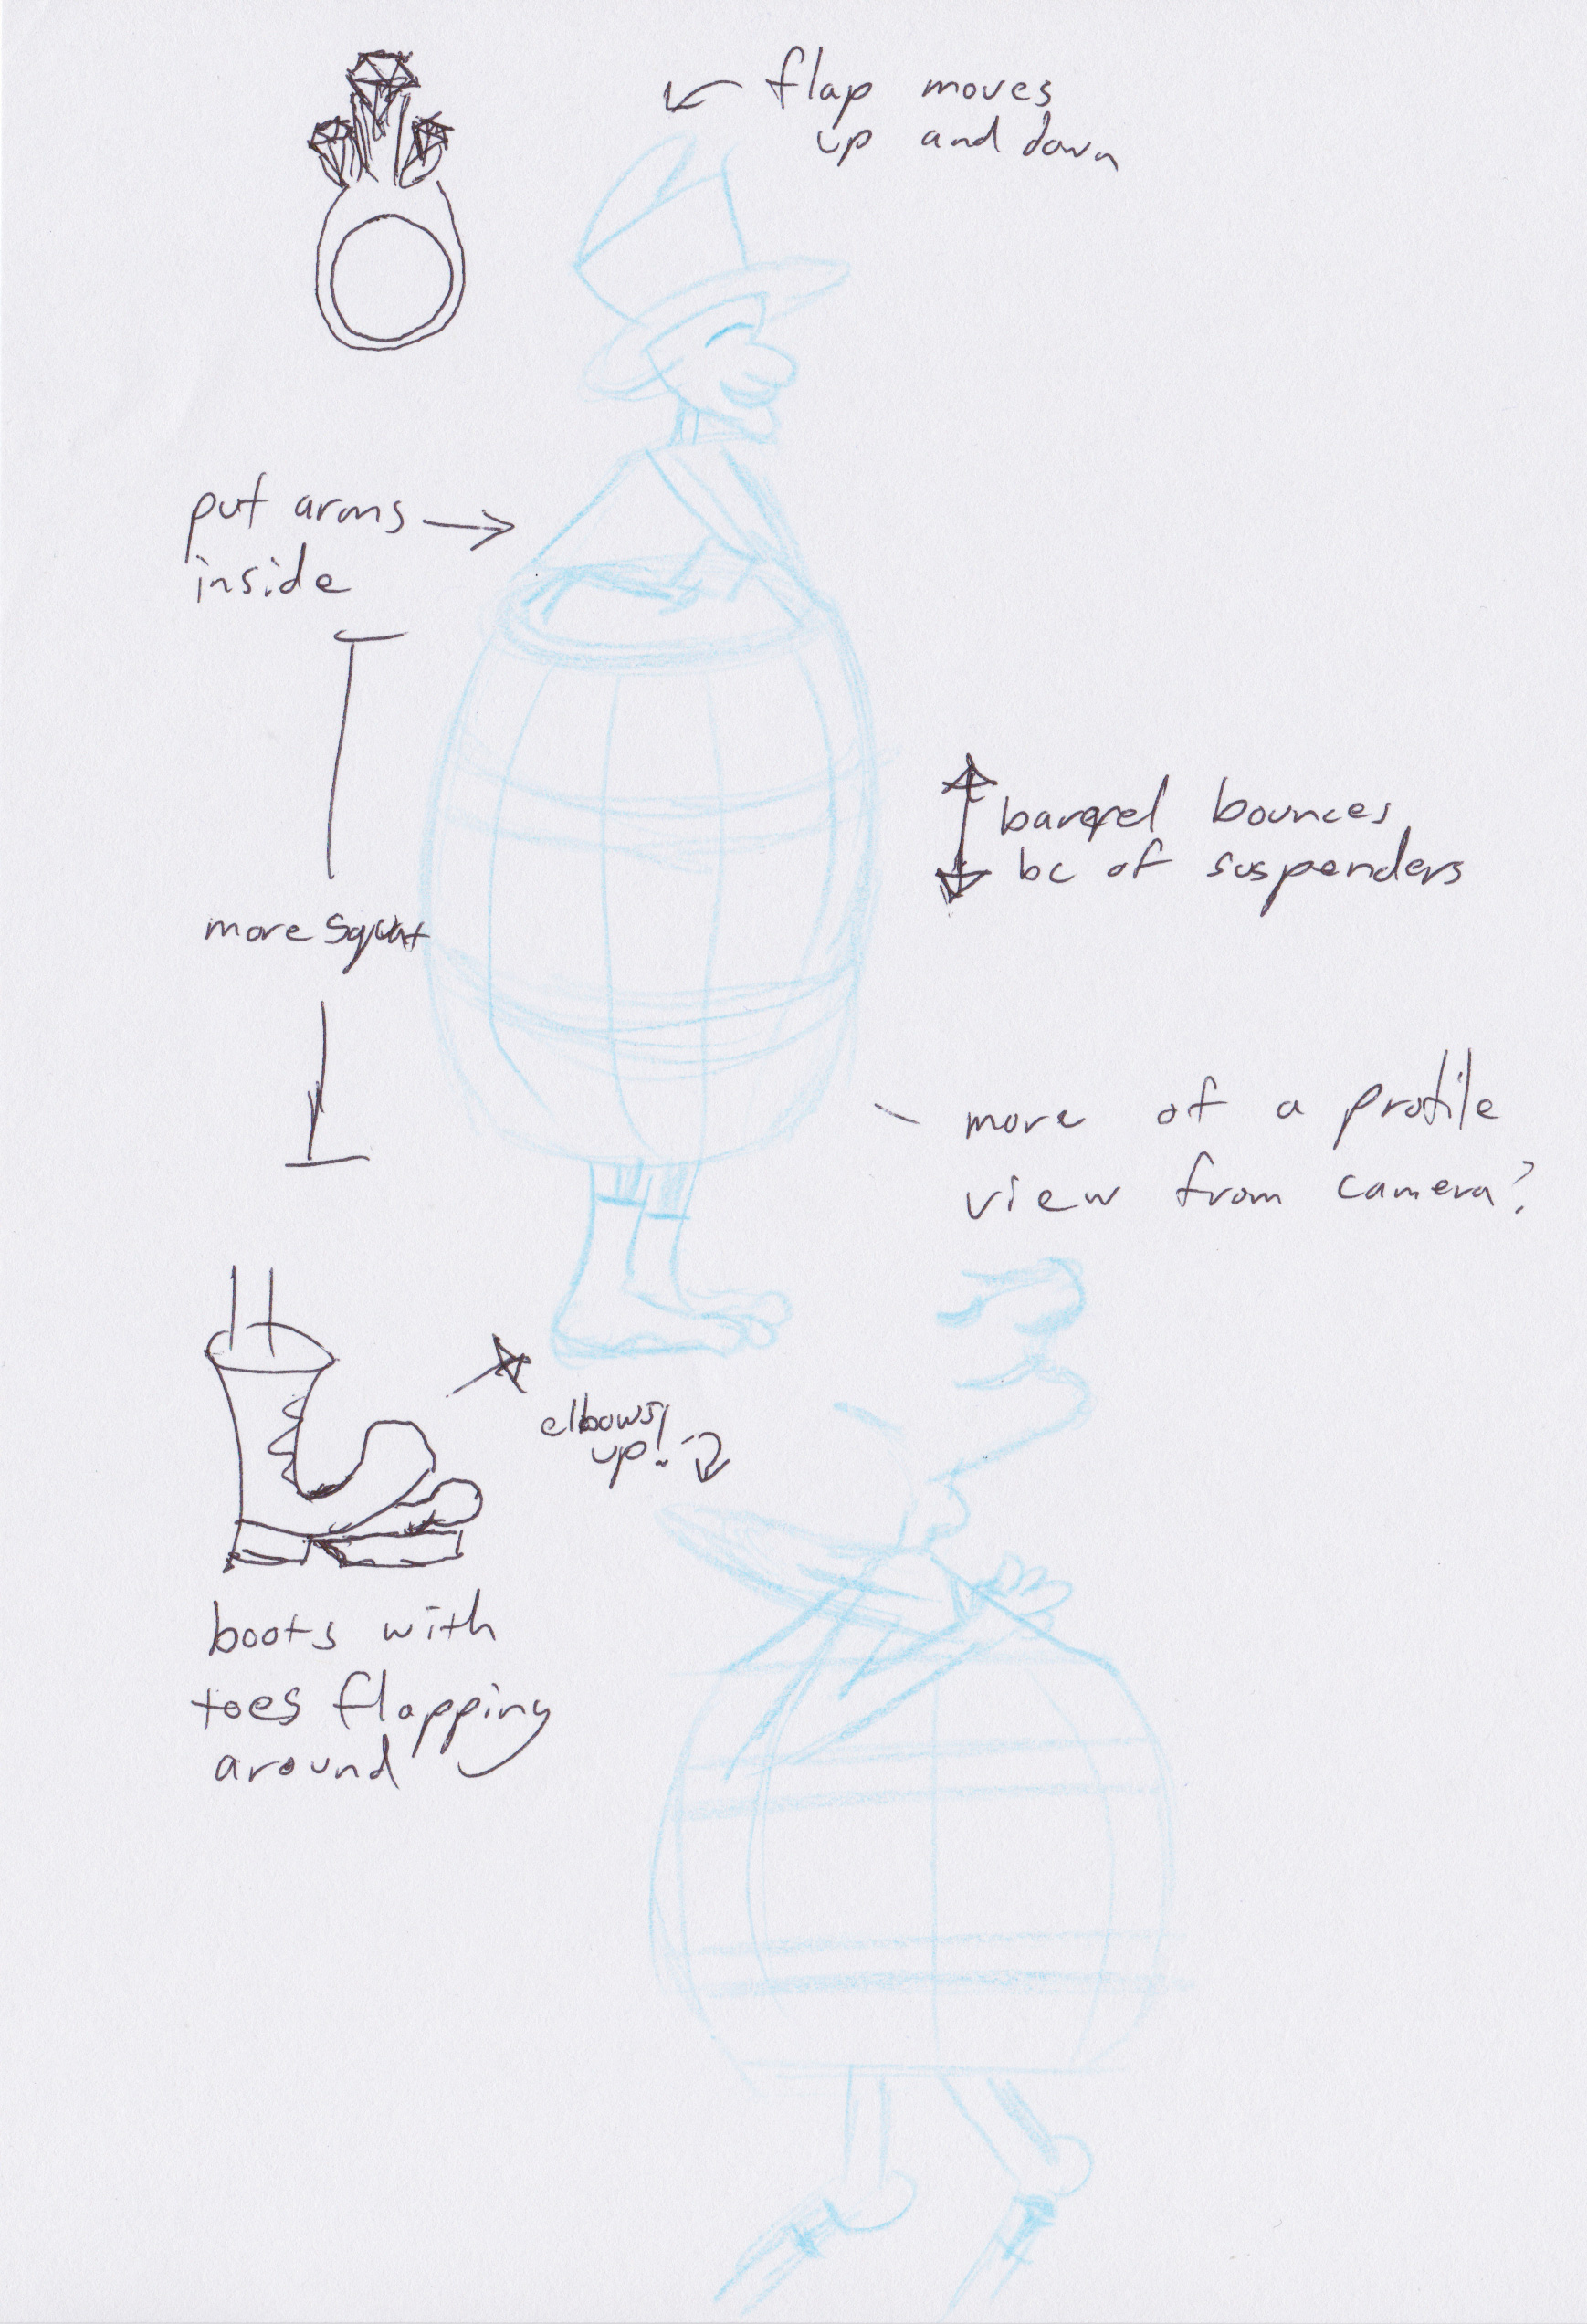 flap moves
up and down
put arms
inside
barrel bounces
bc of suspenders
more squat
more of a profile
view from camera?
elbows
up!
boots with
toes flapping
around